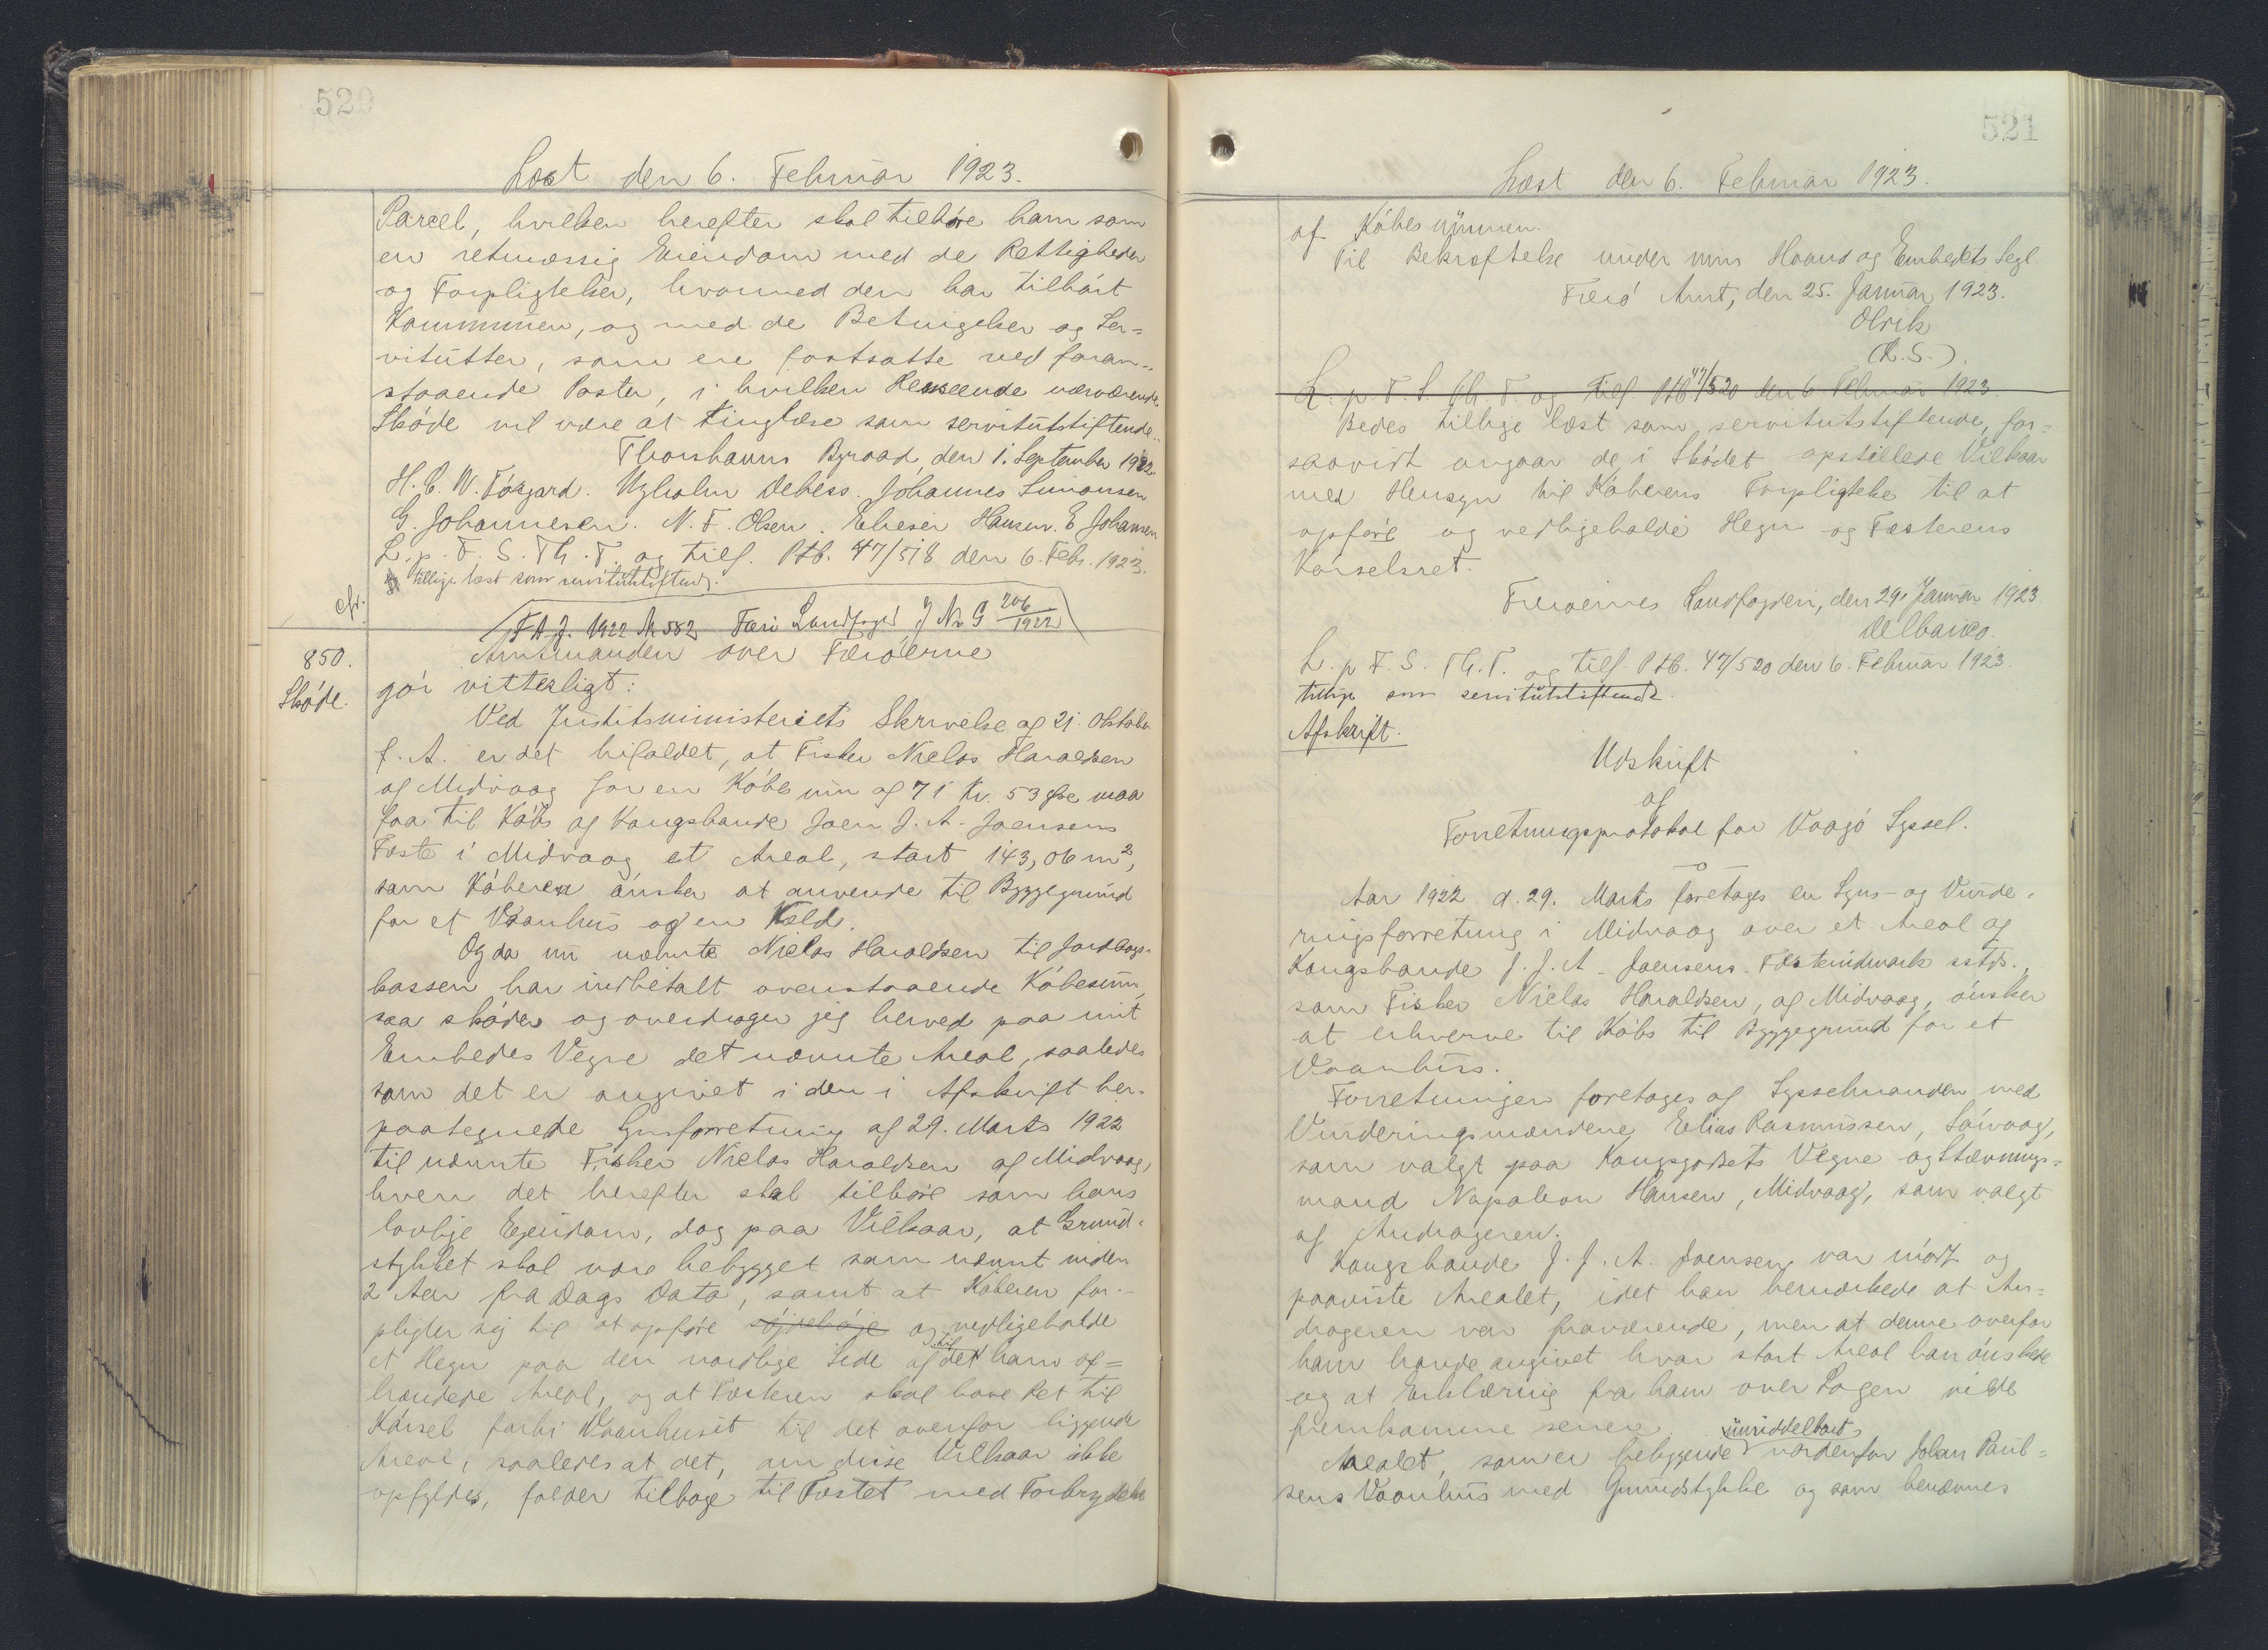 520
Læst den 6. Februar 1923.
Parcel, hvilken herefter skal tilhøre ham som
en retmæssig Eiendom med de Rettigheder
og Forpligtelser, hvormed den har tilhørt
Kommunen, og med de Betingelser og Ser=
vitutter, som ere fastsatte ved foran-
staaende Poster, i hvilken Henseende nærværende
Skøde vil være at tinglæse som servitutstiftende.
Thorshavns Byraad, den 1. September 1922.
H. C. W. Tórgard. Ugholm Debess. Johannes Simonsen
G. Johannesen. N. F. Olsen. Elieser Hansen. E Johansen
L. p. F. S. Th. T. og tilf. Ptb. 47/518 den 6. Febr. 1923.
tillige læst som servitutstiftende.
cfr.
F A J. 1922 Nr 582 Færø Landfoged J Nr G 206/1922
850.
Skøde.
Amtmanden over Færøerne
gør vitterligt:
Ved Justitsministeriets Skrivelse af 21. Oktober
f. A. er det bifaldet, at Fisker Niclas Haraldsen
af Midvaag for en Købesum af 71 Kr. 53 Øre maa
faa til Købs af Kongsbonde Joen J. A. Joensens
Fæste i Midvaag et Areal, stort 143,06 m²,
som Køberen ønsker at anvende til Byggegrund
for et Vaanhus og en Kold.
Og da nu nævnte Niclas Haraldsen til Jordbogs-
kassen har indbetalt ovenstaaende Købesum,
saa skøder og overdrager jeg herved paa mit
Embedes Vegne det nævnte Areal, saaledes
som det er angivet i den i Afskrift her-
paategnede Synsforretning af 29. Marts 1922
til nævnte Fisker Niclas Haraldsen af Midvaag,
hvem det herefter skal tilhøre som hans
lovlige Ejendom, dog paa Vilkaar, at Grund-
stykket skal være bebygget som nævnt inden
2 Aar fra Dags Dato, samt at Køberen for-
pligter sig til at opføre og vedligeholde
et Hegn paa den nordlige Side af det til ham af=
hændede Areal, og at Fæsteren skal have Ret til
Kørsel forbi Vaanhuset til det ovenfor liggende
Areal, saaledes at det, om disse Vilkaar ikke
opfyldes, falder tilbage til Fæstet med Forbrydelse
521
Læst den 6. Februar 1923.
af Købesummen.
Til Bekræftelse under min Haand og Embedets Segl.
Færø Amt, den 25. Januar 1923.
Olrik
(L. S.).
L. p. F. S. Th. T. og tilf. Ptb 47/520 den 6 Februar 1923.
Bedes tillige læst som servitutstiftende, for=
saavidt angaar de i Skødet opstillede Vilkaar
med Hensyn til Køberens Forpligtelse til at
opføre og vedligeholde Hegn og Fæsterens
Kørselsret.
Færøernes Landfogderi, den 29. Januar 1923
Delbanco.
L. p F. S. Th. T. og tilf. Ptb. 47/520 den 6. Februar 1923.
tillige som servitutstiftende.
Afskrift.
Udskrift
af
Forretningsprotokol for Vaagø Syssel.
Aar 1922 d. 29. Marts foretages en Syns- og Vurde-
ringsforretning i Midvaag over et Areal af
Kongsbonde J. J. A. Joensens Fæsteindmark sstds.,
som Fisker Niclas Haraldsen, af Midvaag, ønsker
at erhverve til Købs til Byggegrund for et
Vaanhus.
Forretningen foretages af Sysselmanden med
Vurderingsmændene Elias Rasmussen, Sørvaag,
som valgt paa Kongsgodsets Vegne og Stævnings=
mand Napoleon Hansen, Midvaag, som valgt
af Andrageren.
Kongsbonde J. J. A. Joensen var mødt og
paaviste Arealet, idet han bemærkede at An=
drageren var fraværende, men at denne overfor
ham havde angivet hvor stort Areal han ønskede
og at Erklæring fra ham over Sagen vilde
fremkomme senere.
Arealet, som er beliggende umiddelbart nordenfor Johan Paul=
sens Vaanhus med Grundstykke og som benævnes